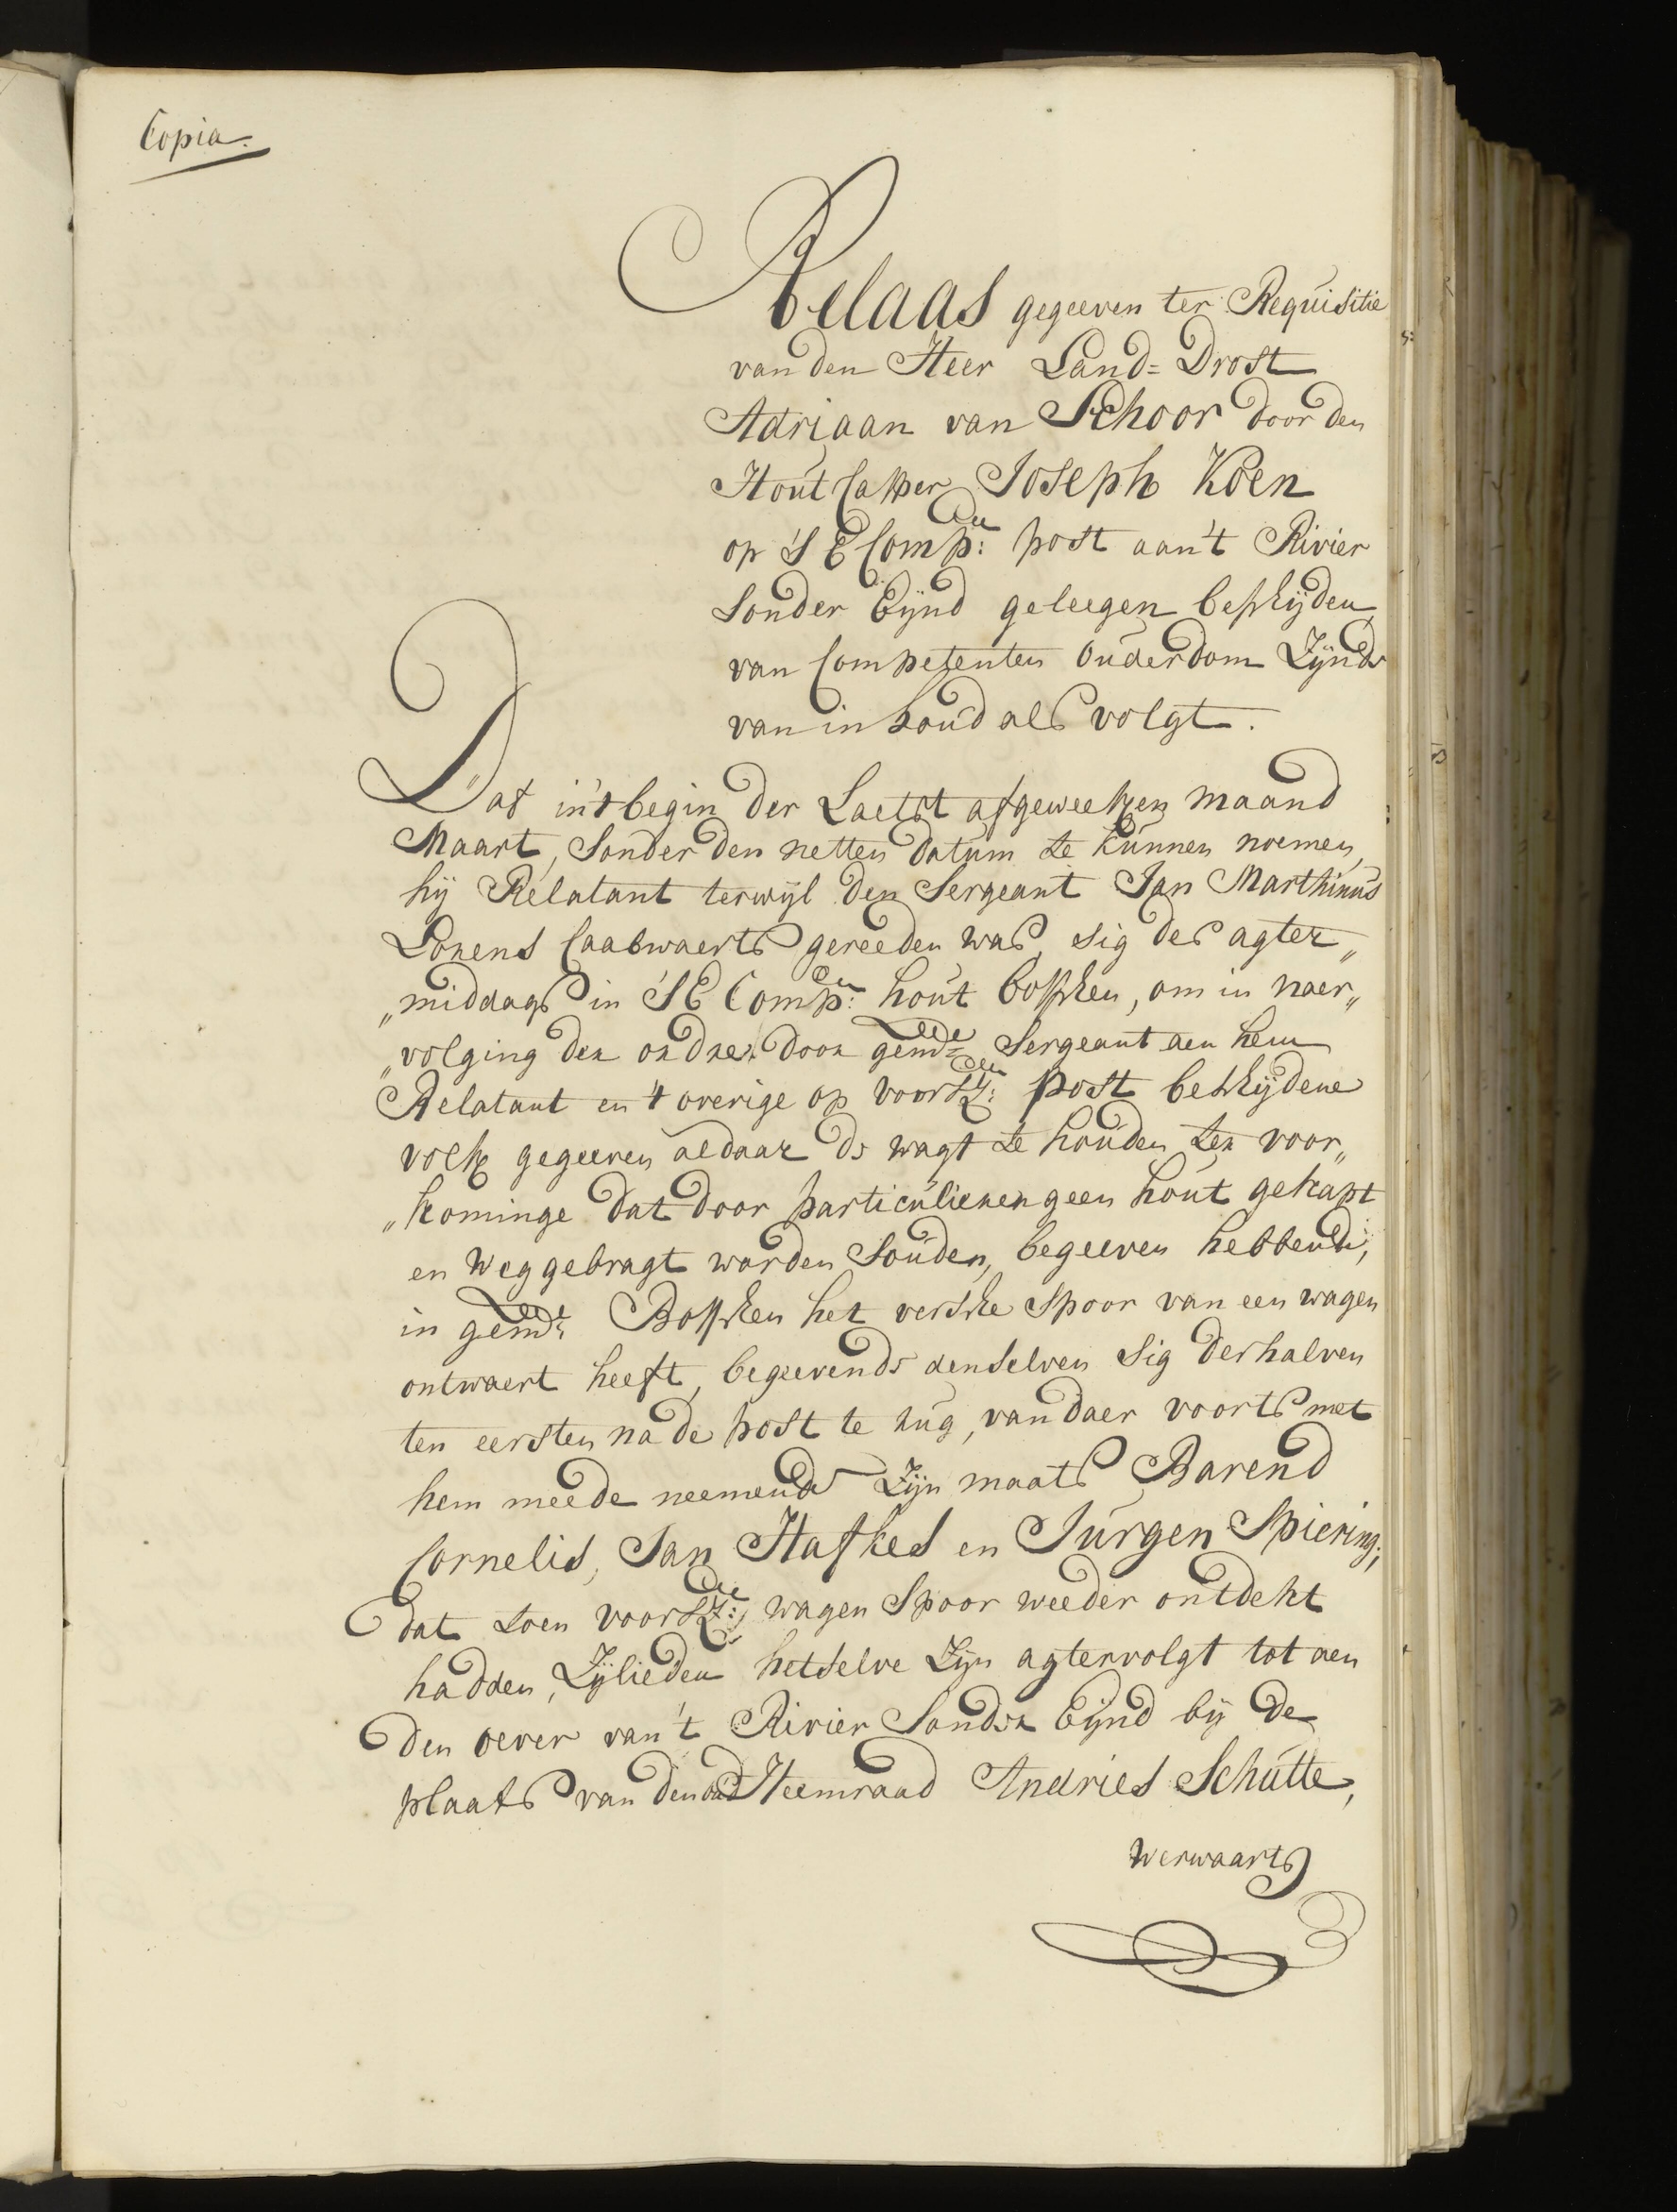 Copia.
Relaas gegeeven ter Requisitie
van den Heer Land=Drost
Adriaan van Schoor door den
Hout Capper Joseph Koen
op 's E Comp:en post aan 't Rivier
Sonder Eÿnd geleegen bescheÿden
van Competenten Ouderdom Zÿnde
van inhoud als volgt.
Dat in 't begin der Laetst afgeweeken maand
Maart, Sonder den netten datum te kunnen noemen,
hÿ Relatant terwÿl den Sergeant Jan Marthinus
Lorens Caabwaerts gereeden was, sig des agter„
„middags in 's E Comp:en hout bosschen, om in naer„
„volging der ordre, door gemde Sergeant aen hem
Relatant en 't overige op voorsz:en post bescheÿdene
volk gegeeven aldaar de wagt te houden ter voor„
„kominge dat door particulieren geen hout gekapt
en weg gebragt worden Souden, begeeven hebbende,
in gemde Bosschen het versche Spoor van een wagen
ontwaert heeft, begeevende denselven Sig derhalven
ten eersten na de post te rug, van daer voorts met
hem meede neemende Zÿn maats Barend
Cornelis, Jan Hafkes en Jurgen Spiering;
dat toen voorsz:en wagen Spoor weeder ontdekt
hadden, Zÿlieden hetselve Zÿn agtervolgt tot aen
den oever van 't Rivier Sonder Eÿnd bÿ de
plaats van den oud Heemraad Andries Schutte,
werwaarts